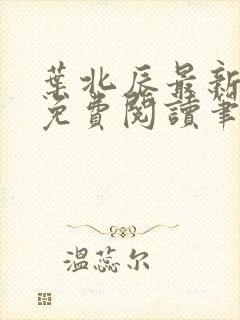 葉北辰最新
免費閱讀筆
溫蕊尔